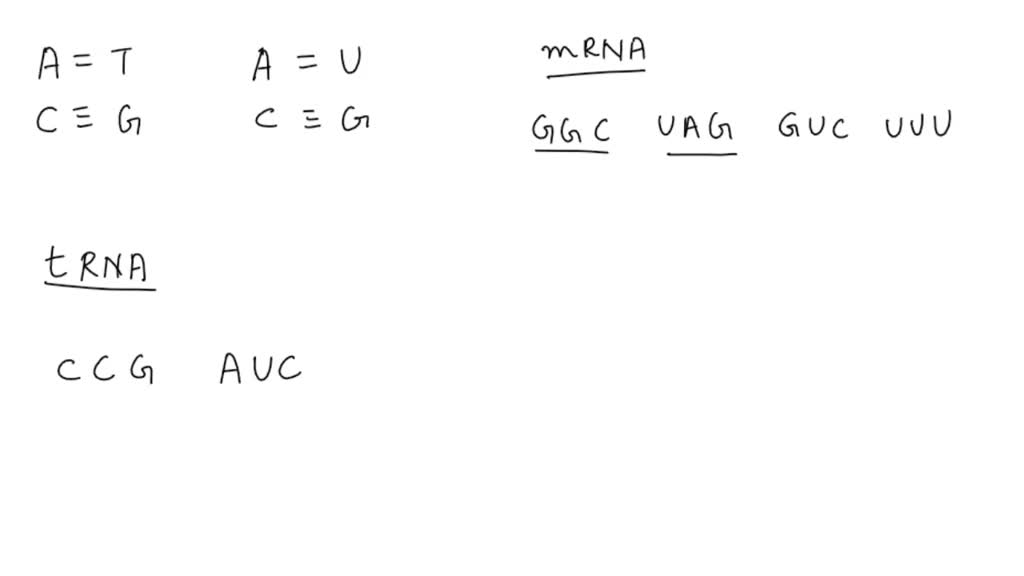 A = T
C ≡ G
A = U
C ≡ G
mRNA
GGC UAG GUC UUU
tRNA
CCG AUC